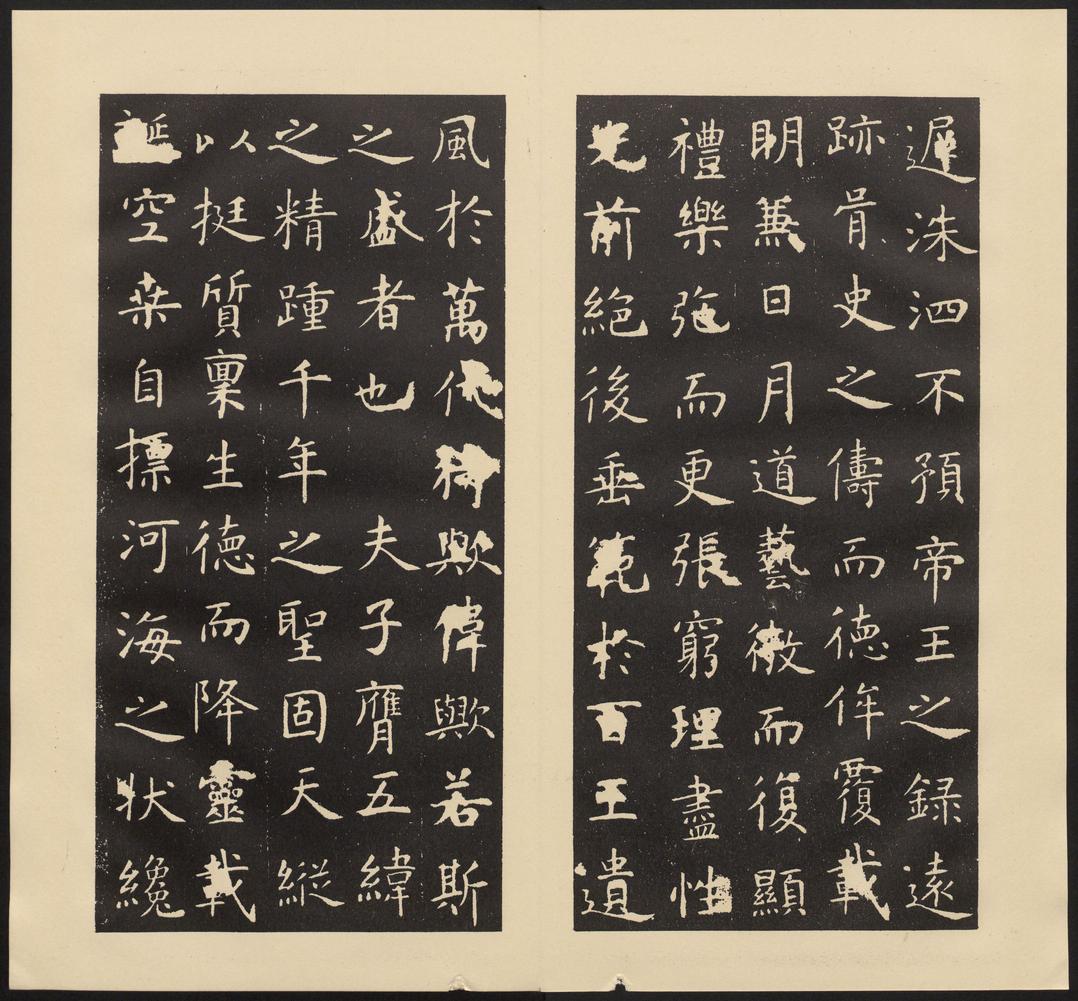 遲洙泗不預帝王之錄遠
跡胥史之儔而德侔覆載
明兼日月道藝微而復顯
禮樂弛而更張窮理盡性
光前絕後垂範於百王遺
風於萬代猗歟偉歟若斯
之盛者也夫子膺五緯
之精踵千年之聖固天縱
以挺質稟生德而降靈載
誕空桒自標河海之狀纔